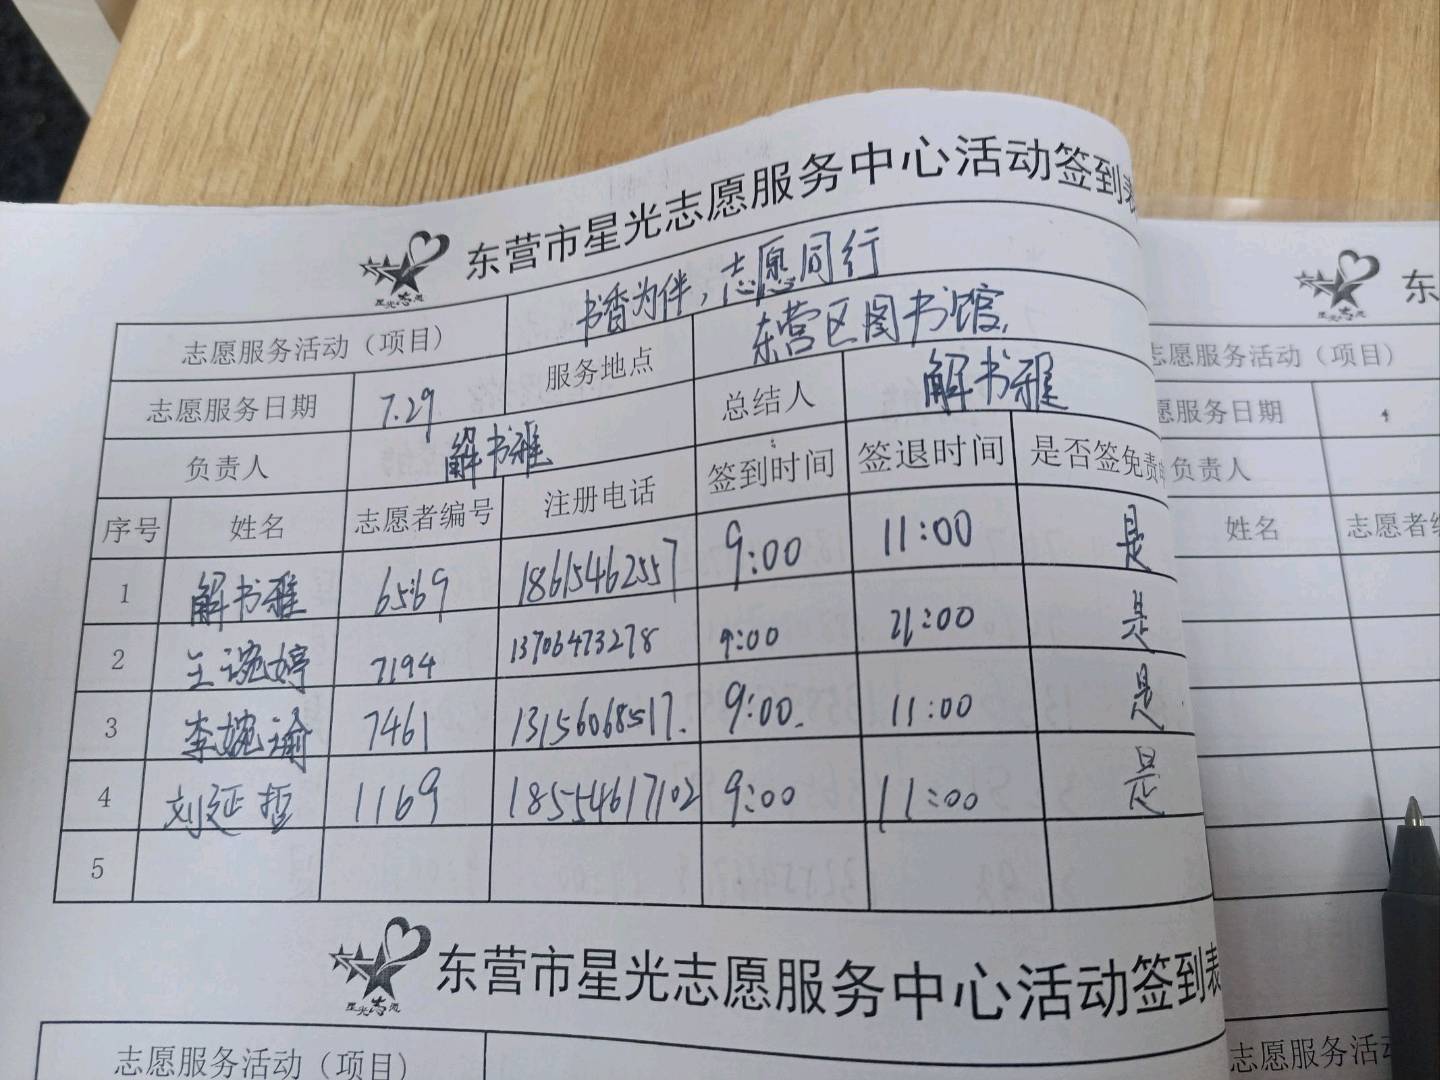 东营市星光志愿服务中心活动签到表
星光志愿
志愿服务活动（项目） 书香为伴，志愿同行
志愿服务日期 7.29 服务地点 东营区图书馆
负责人 解书雅 总结人 解书雅
序号 姓名 志愿者编号 注册电话 签到时间 签退时间 是否签免责
1 解书雅 6569 18615462557 9:00 11:00 是
2 王婷 7194 13706473278 9:00 11:00 是
3 李婉瑜 7461 13156068517. 9:00. 11:00 是
4 刘延哲 1169 18554617102 9:00 11:00 是
5
东营市星光志愿服务中心活动签到表
星光志愿
志愿服务活动（项目）
东
志愿服务活动（项目）
愿服务日期
负责人
姓名 志愿者编
志愿服务活动